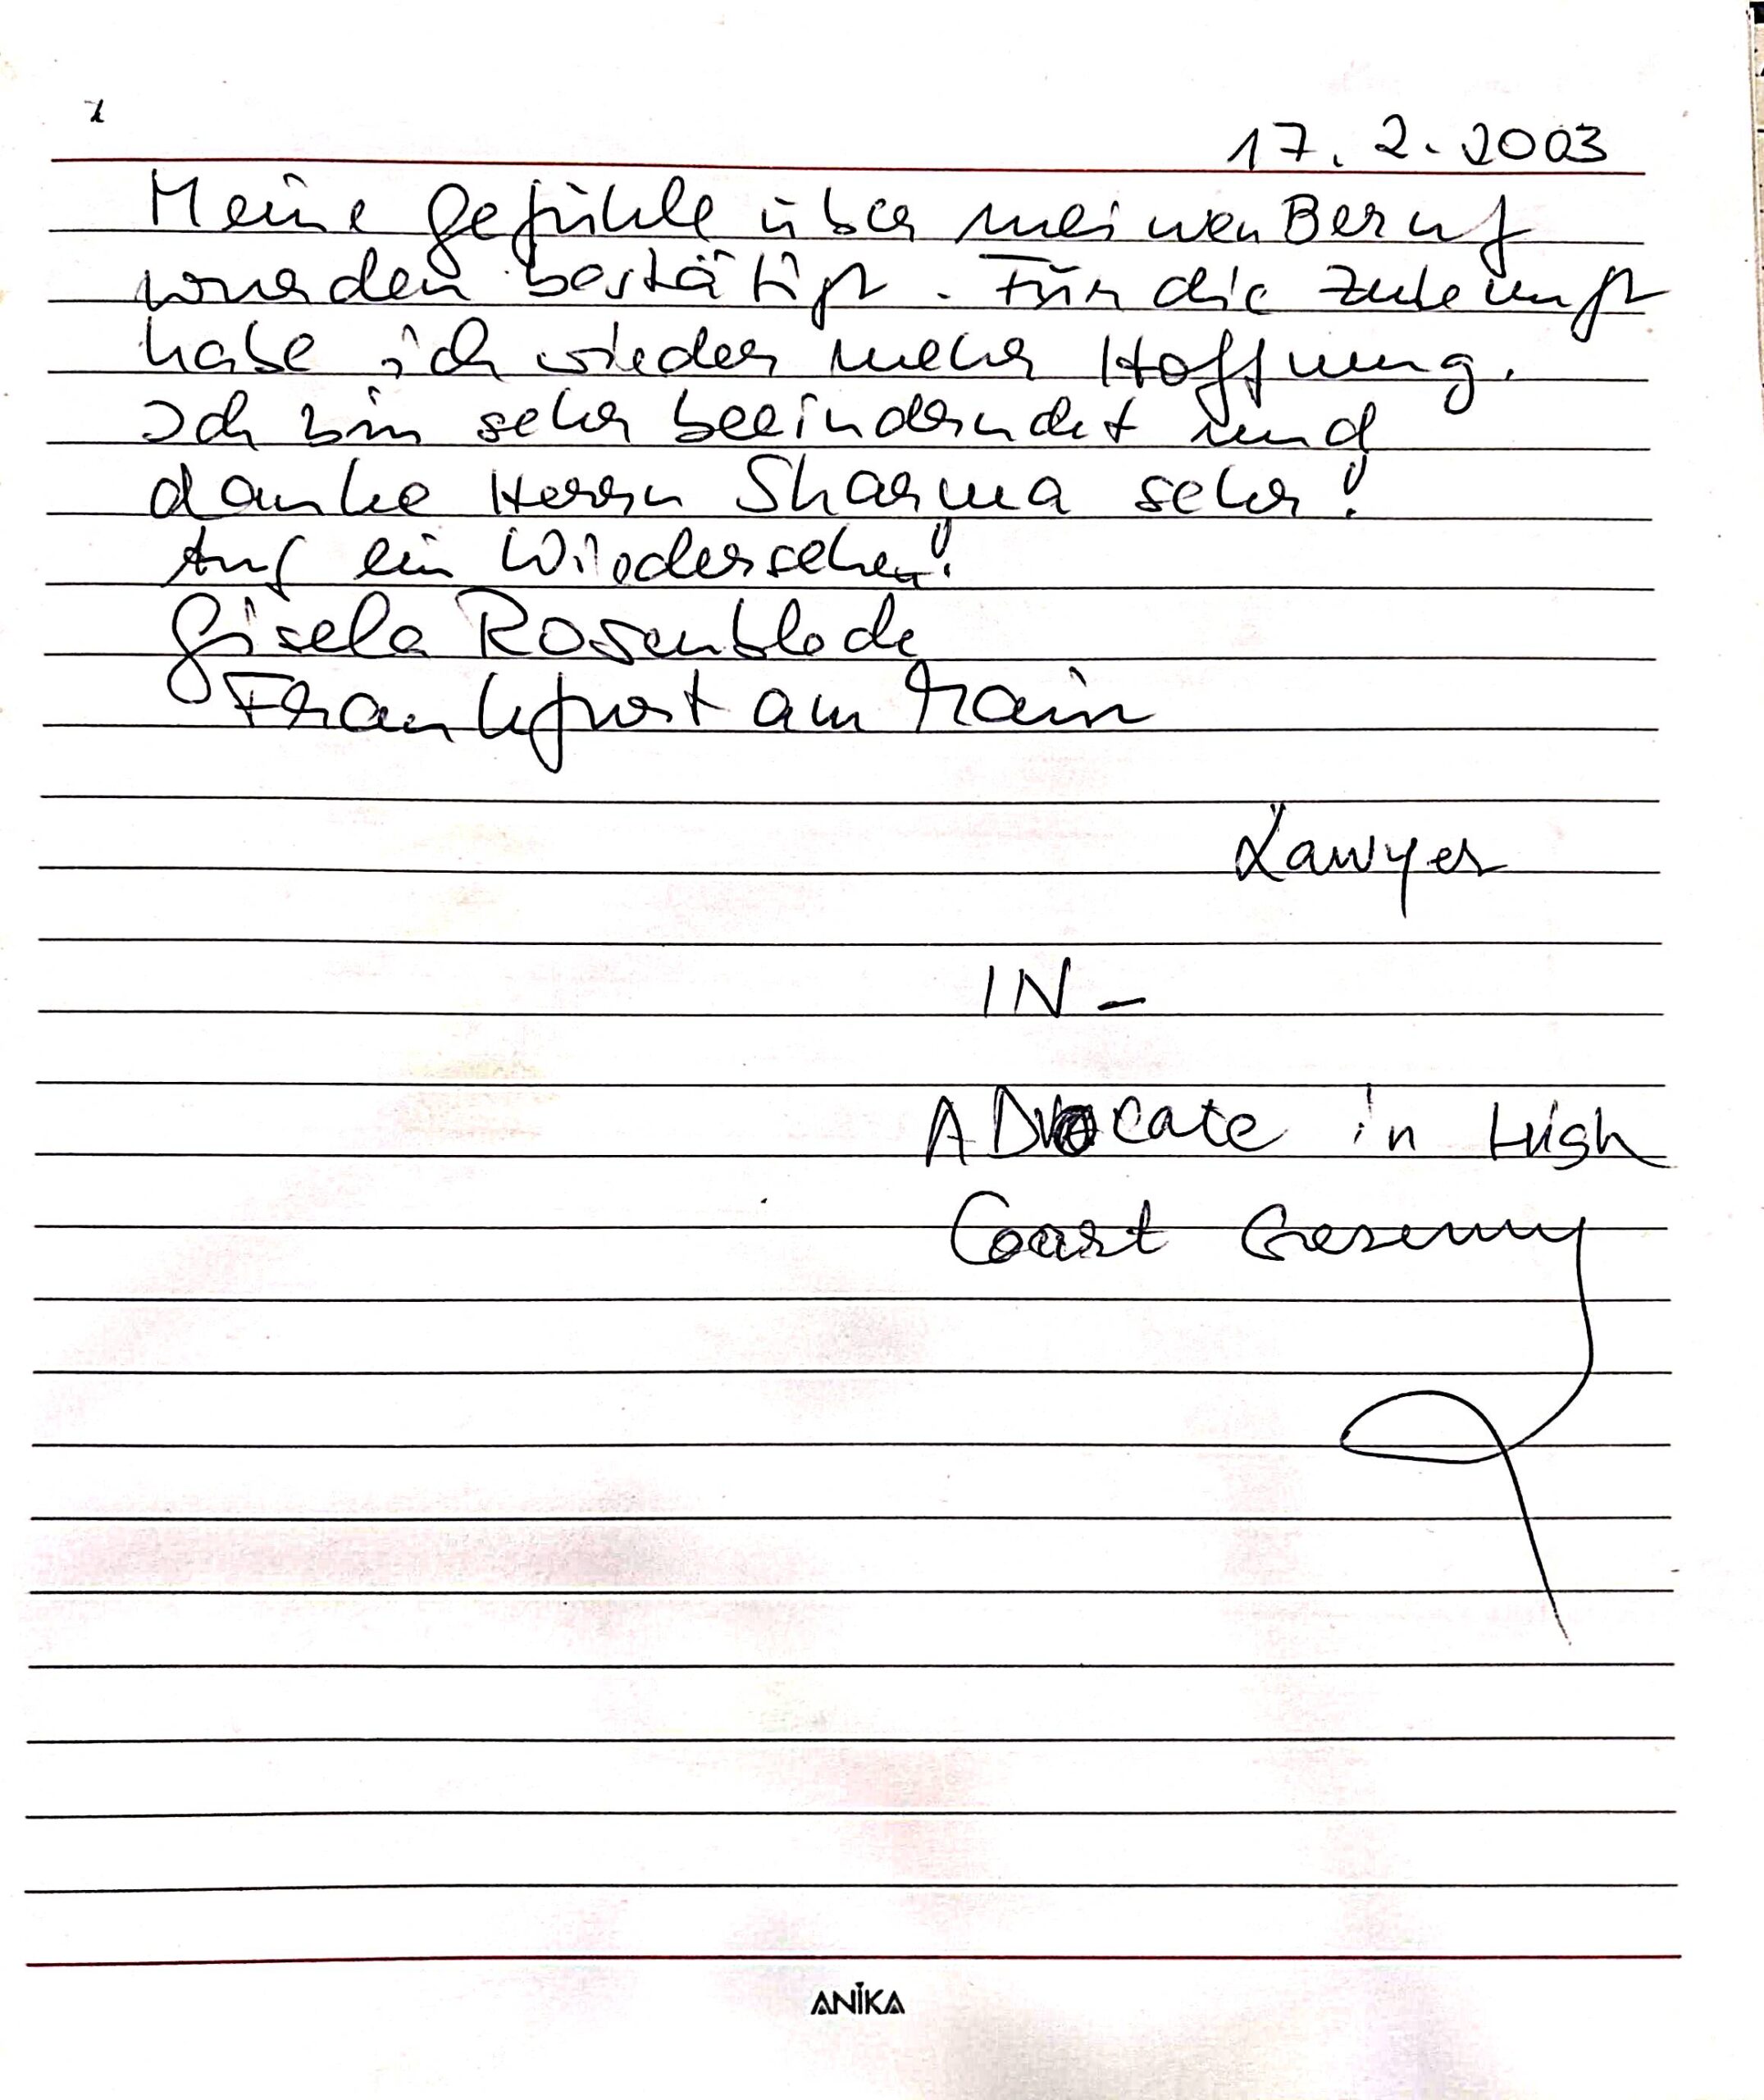 17.2.2003
Meine Gefühle über meinen Beruf
wurden bestätigt. Für die Zukunft
habe ich wieder mehr Hoffnung.
Ich bin sehr beeindruckt und
danke Herrn Sharma sehr!
Auf ein Wiedersehen!
Gisela
Frankfurt am Main
Lawyer
IN -
ADVOcate in High
Court Geremny
ANIKA